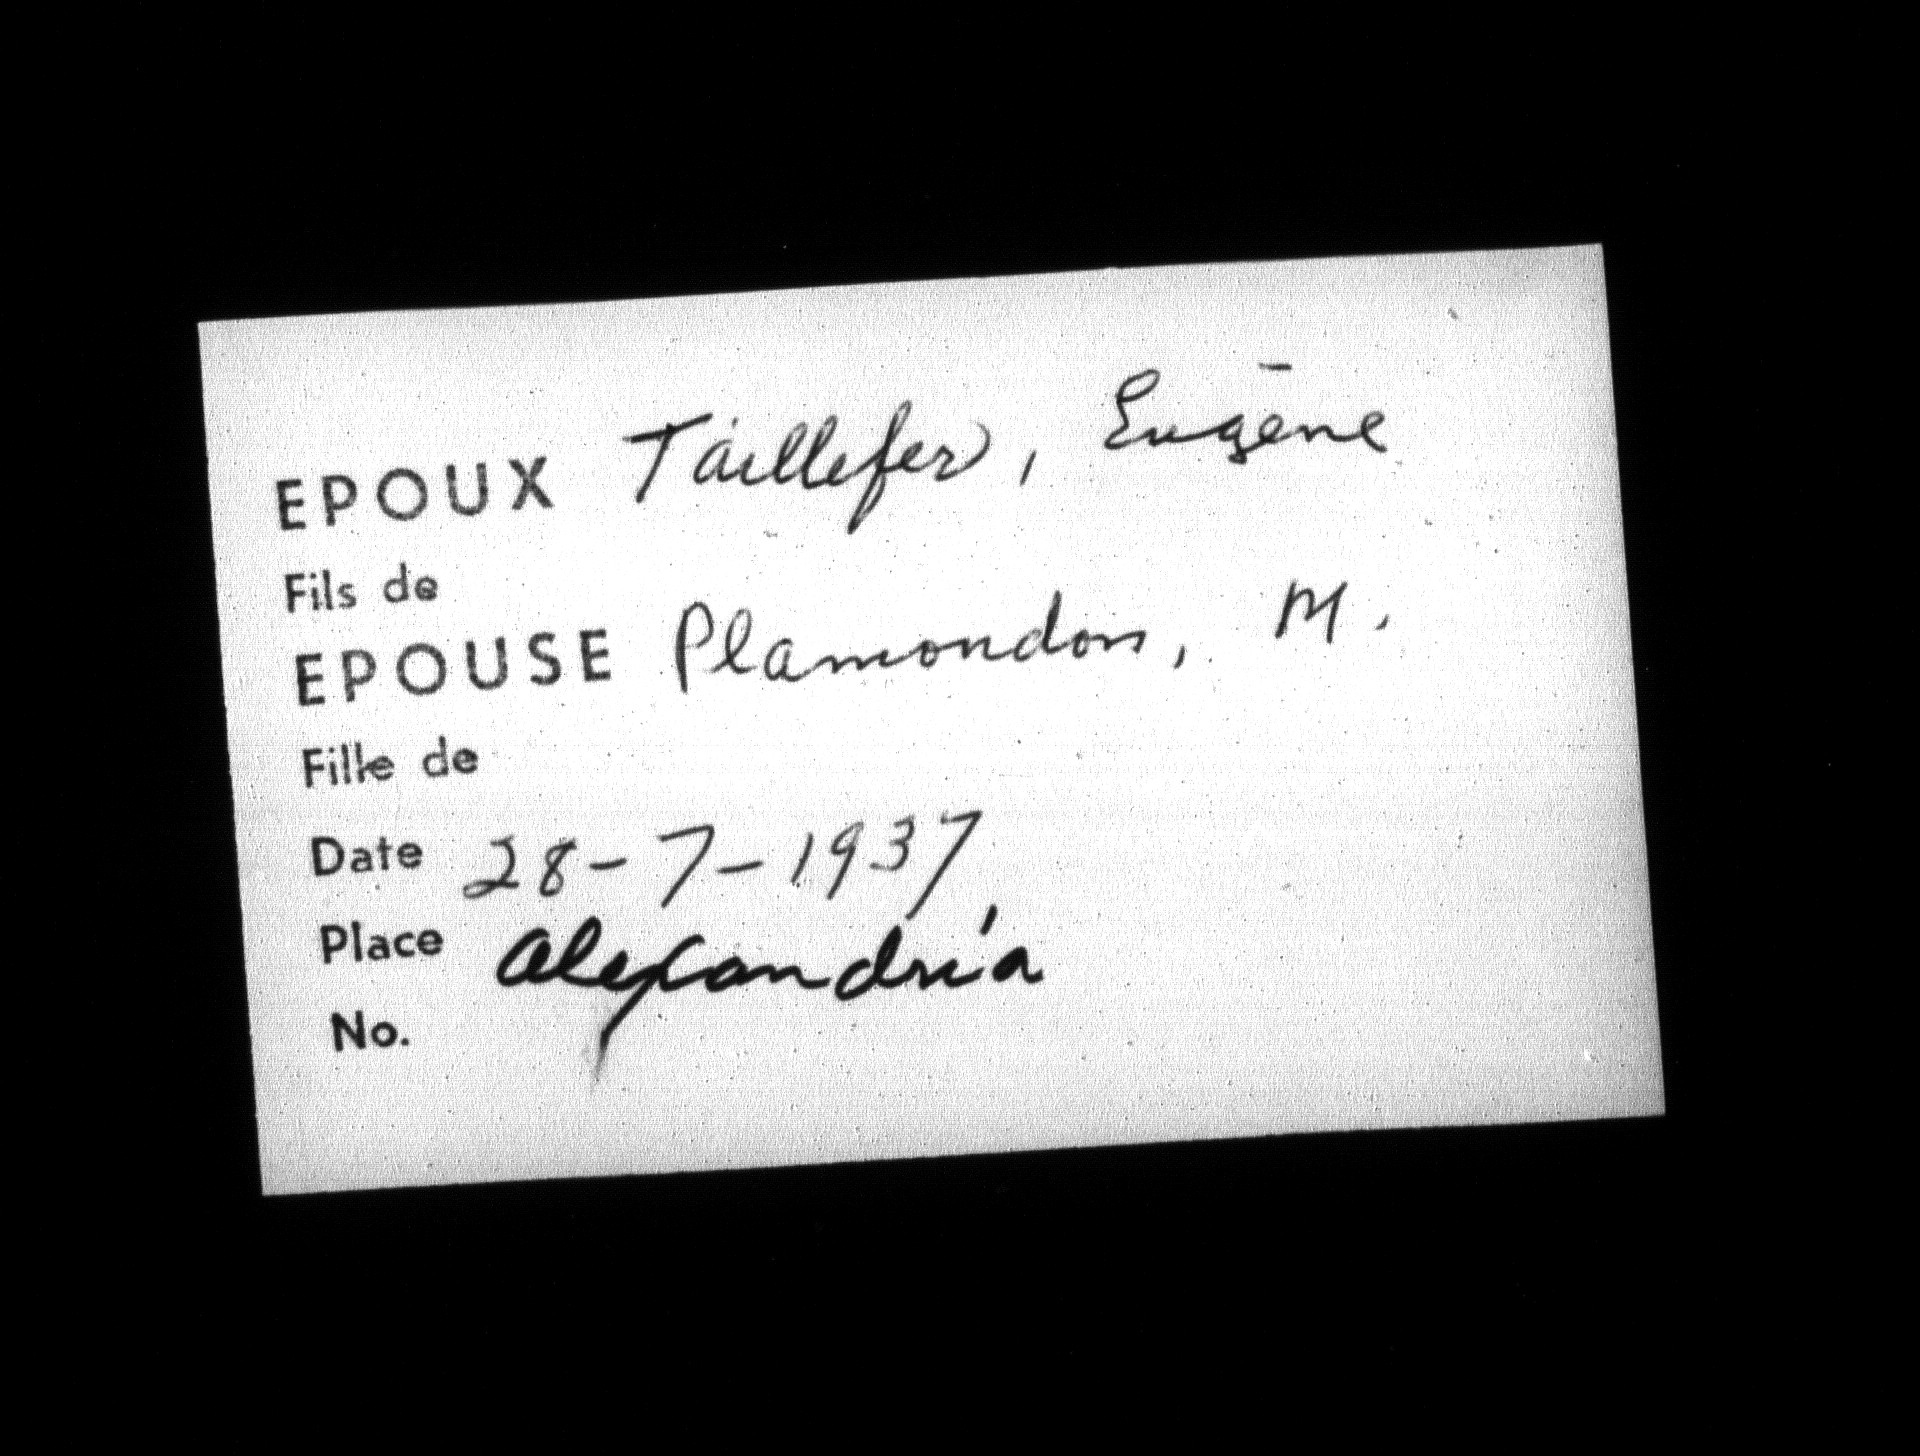 EPOUX Taillefer, Eugène
Fils de
EPOUSE Plamondon, M.
Fille de
Date 28-7-1937
Place Alexandria
No.